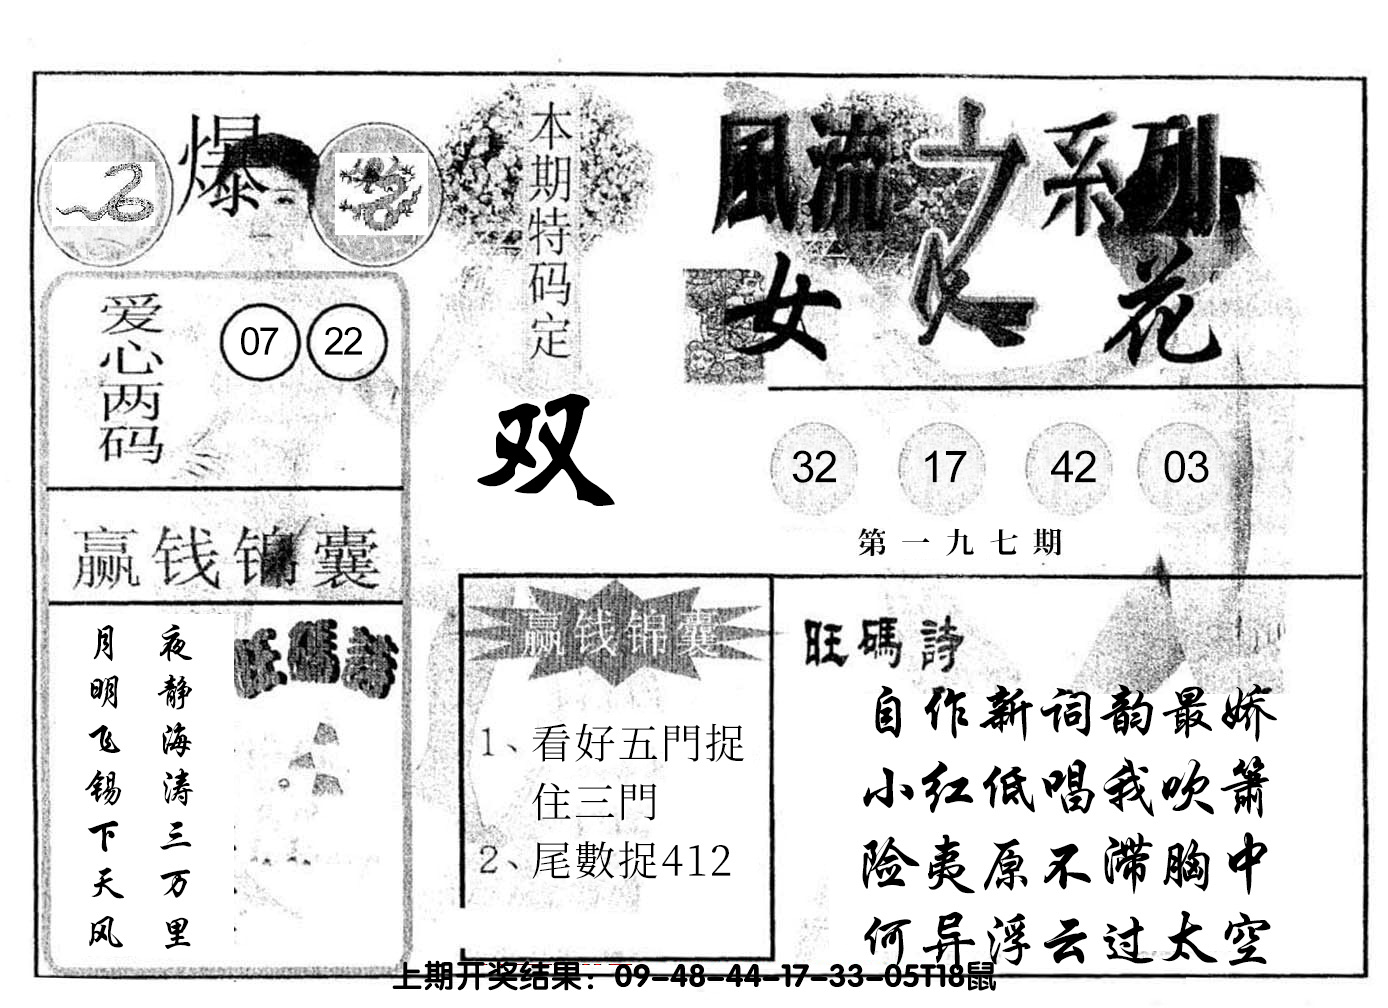 爆
本期特码定
双
風流之系列
女人花
爱心两码
07 22
32 17 42 03
第一九七期
赢钱锦囊
夜静海涛三万里
月明飞锡下天风
旺碼詩
赢钱锦囊
1、看好五門捉
住三門
2、尾數捉412
旺碼詩
自作新词韵最娇
小红低唱我吹箫
险夷原不滞胸中
何异浮云过太空
上期开奖结果：09-48-44-17-33-05T18鼠